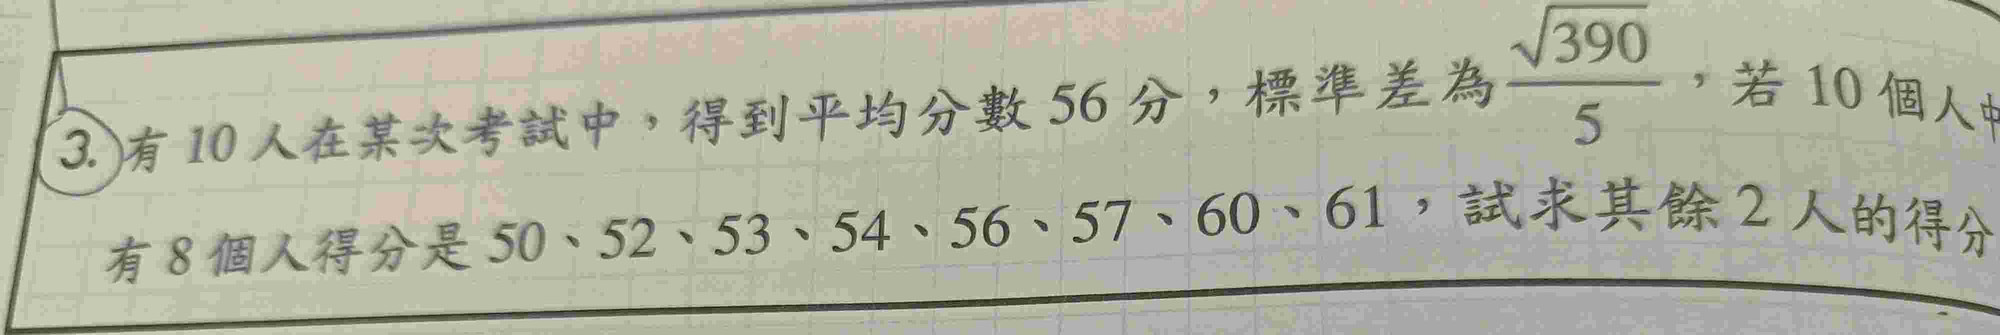 3. 有 10 人在某次考試中，得到平均分數 56 分，標準差為 √390/5，若 10 個人中
有 8 個人得分是 50、52、53、54、56、57、60、61，試求其餘 2 人的得分